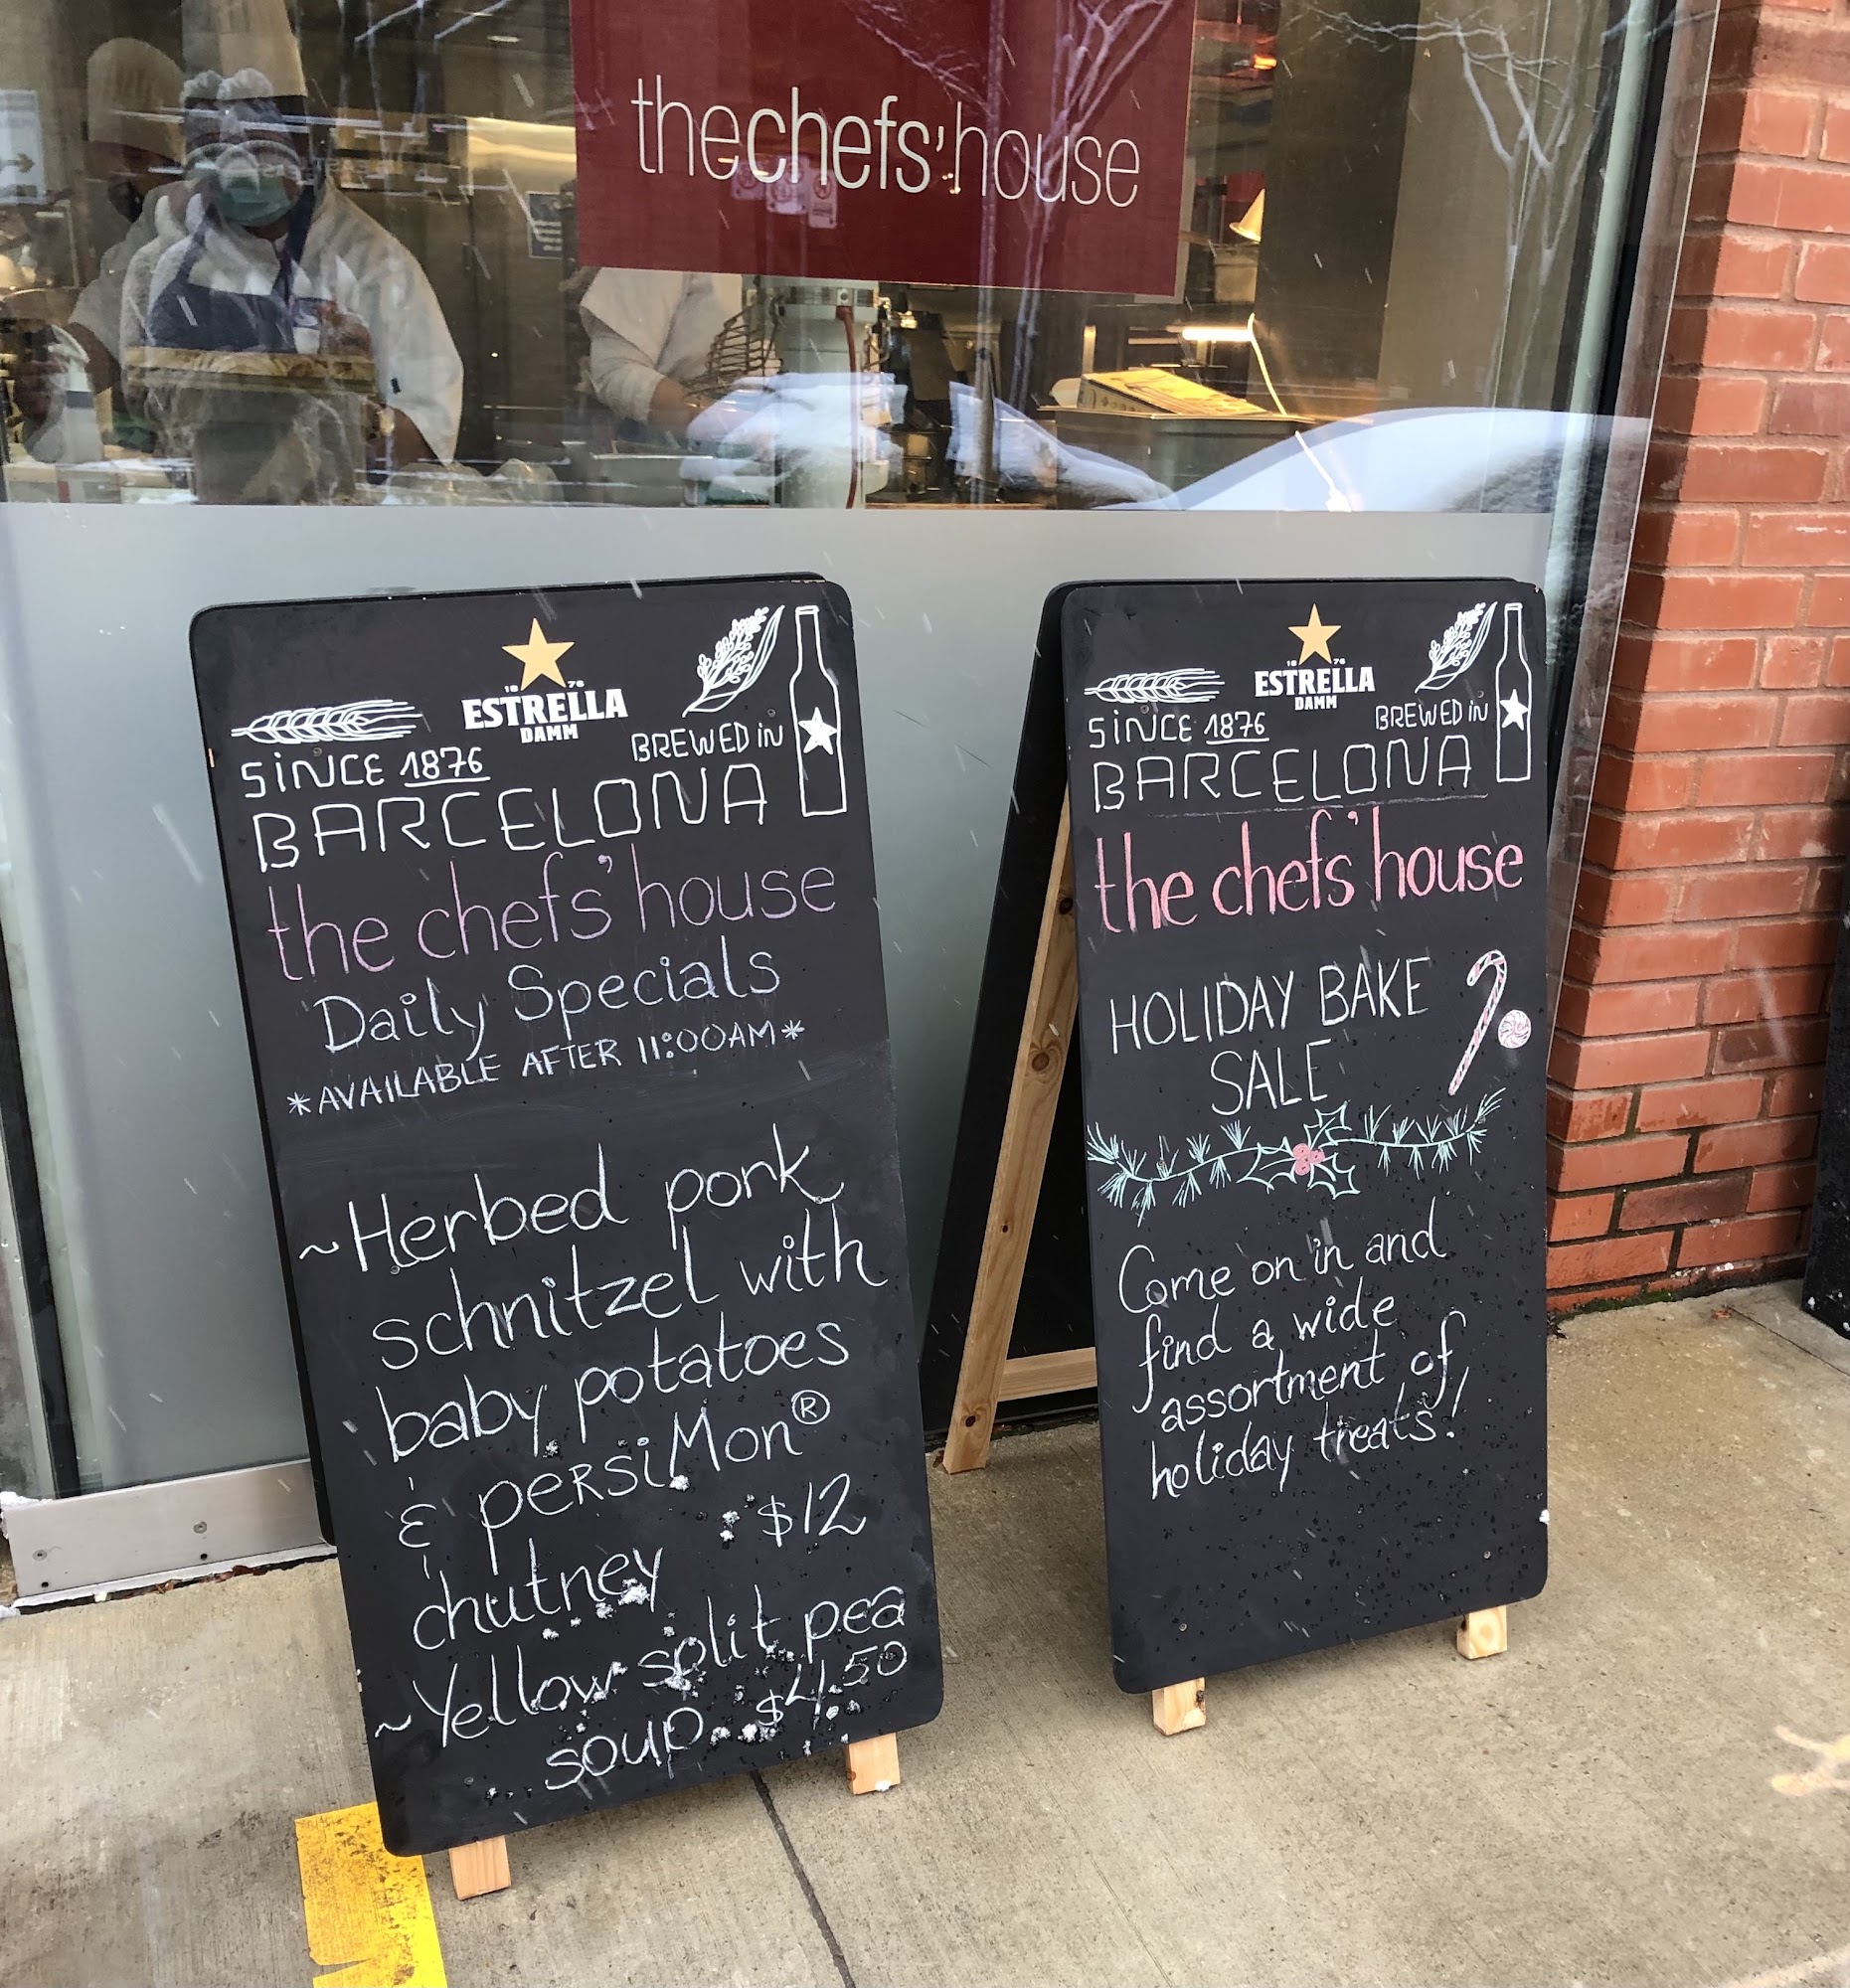 thechefs'house
1876
ESTRELLA
DAMM
SINCE 1876
BREWED IN
BARCELONA
the chefs' house
Daily Specials
*AVAILABLE AFTER 11:00AM*
~Herbed pork
schnitzel with
baby potatoes
& PERSiMon®
chutney $12
~Yellow split pea
soup $4.50
1876
ESTRELLA
DAMM
SINCE 1876
BREWED IN
BARCELONA
the chefs' house
HOLIDAY BAKE
SALE
Come on in and
find a wide
assortment of
holiday treats!